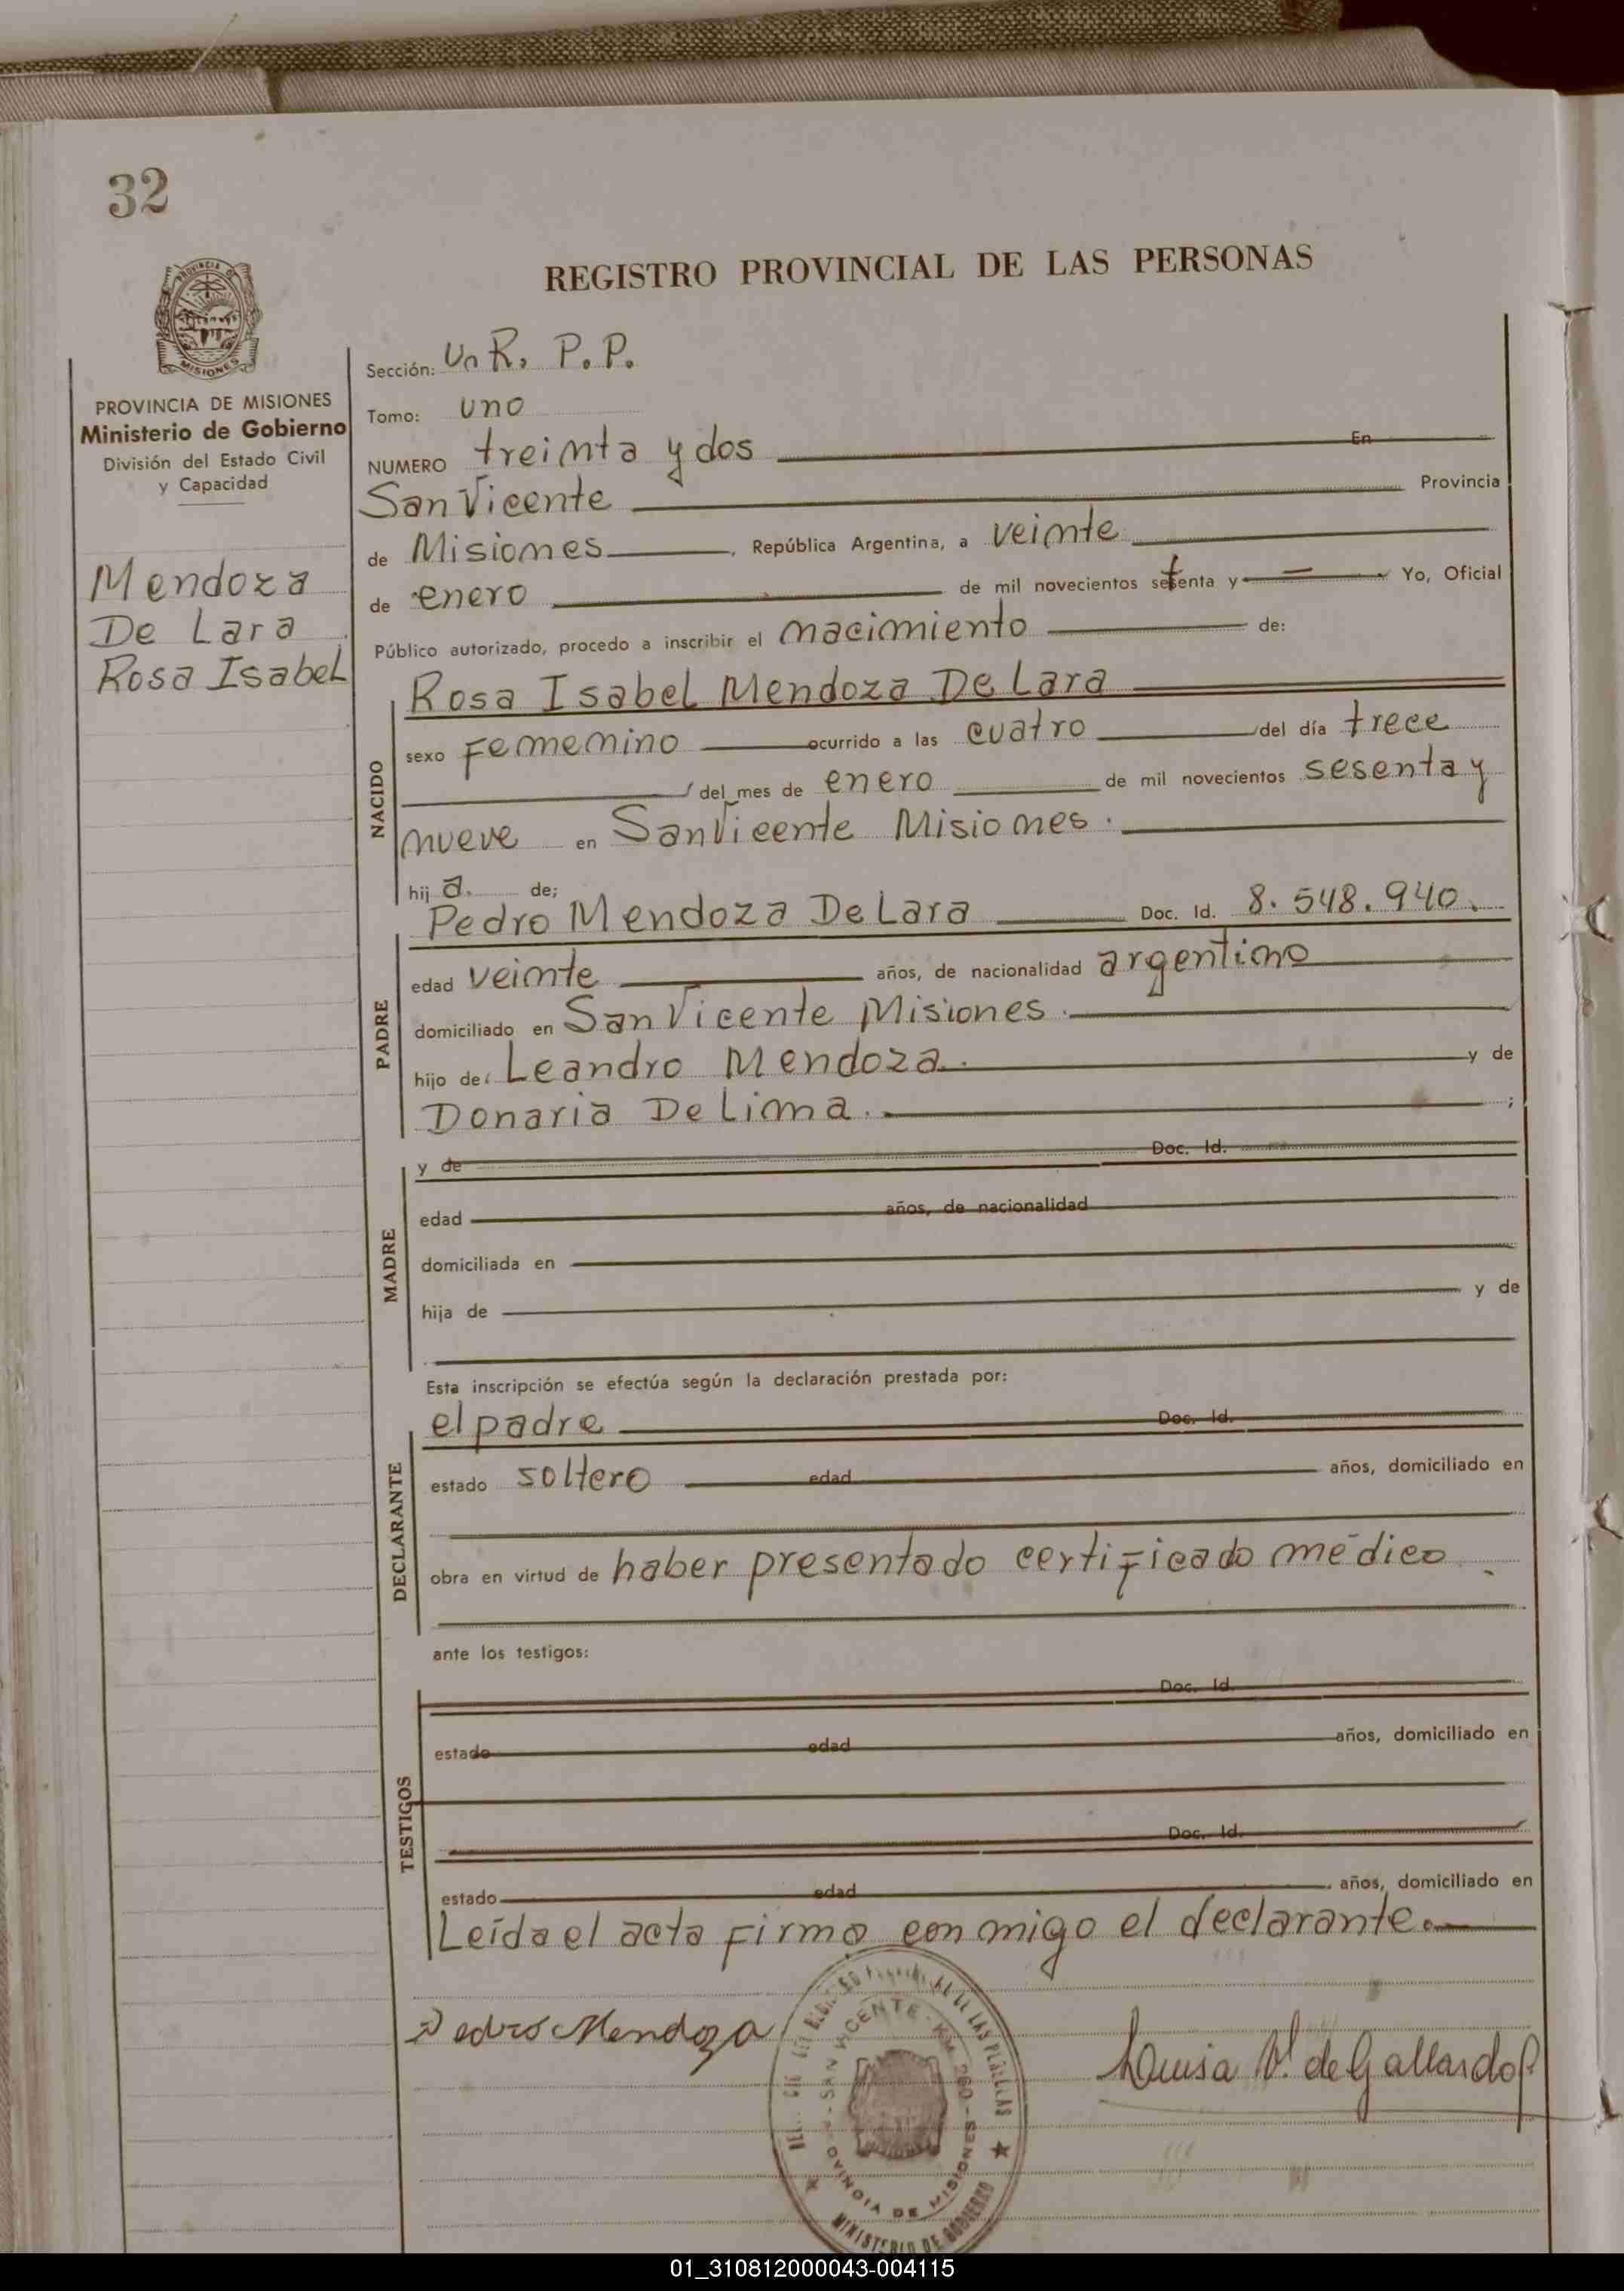 32
REGISTRO PROVINCIAL DE LAS PERSONAS
MISIONES
PROVINCIA DE MISIONES
Ministerio de Gobierno
División del Estado Civil
y Capacidad
Mendoza
De Lara
Rosa Isabel
Sección: Un R. P.P.
Tomo: uno
NUMERO treinta y dos En
San Vicente Provincia
de Misiones, República Argentina, a veinte
de enero de mil novecientos setenta y = Yo, Oficial
Público autorizado, procedo a inscribir el nacimiento de:
NACIDO
Rosa Isabel Mendoza De Lara
sexo Femenino ocurrido a las cuatro del día trece
del mes de enero de mil novecientos sesenta y
nueve en San Vicente Misiones.
hija. de;
PADRE
Pedro Mendoza De Lara Doc. Id. 8.548.940.
edad veinte años, de nacionalidad argentino
domiciliado en San Vicente Misiones.
hijo de: Leandro Mendoza. y de
Donaria De Lima. ;
MADRE
y de Doc. Id.
edad años, de nacionalidad
domiciliada en
hija de y de
Esta inscripción se efectúa según la declaración prestada por:
DECLARANTE
el padre Doc. Id.
estado soltero edad años, domiciliado en
obra en virtud de haber presentado certificado médico.
ante los testigos:
TESTIGOS
Doc. Id.
estado edad años, domiciliado en
Doc. Id.
estado edad años, domiciliado en
Leída el acta firmo conmigo el declarante.
Pedro Mendoza
SAN VICENTE - KM 260 -
DE MISIONES
MINISTERIO DE GOBIERNO
Luisa V. de Gallardo
01_310812000043-004115